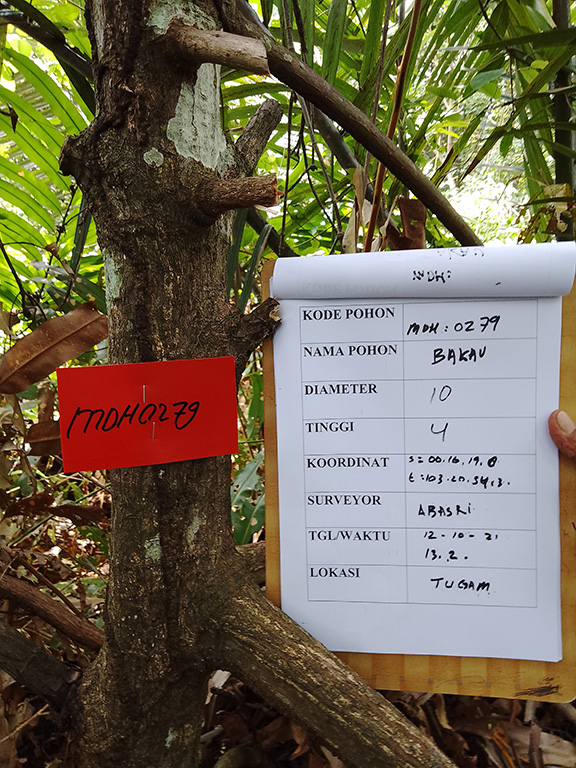 MDH0279
MDH:
KODE POHON MDH : 0279
NAMA POHON BAKAU
DIAMETER 10
TINGGI 4
KOORDINAT S = 00.16.19.0
E = 103.20.54.3.
SURVEYOR ABASRI
TGL/WAKTU 12-10-21
13.2.
LOKASI TUGAM